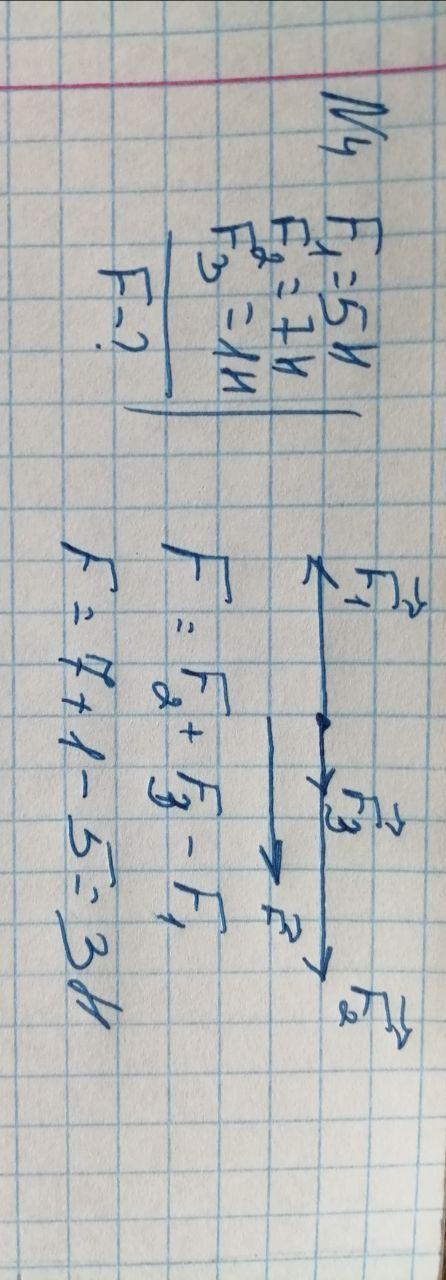 №4
F₁ = 5Н
F₂ = 7Н
F₃ = 1Н
F - ?
F⃗₁ F⃗₃ F⃗₂
F⃗
F = F₂ + F₃ - F₁
F = 7 + 1 - 5 = 3Н